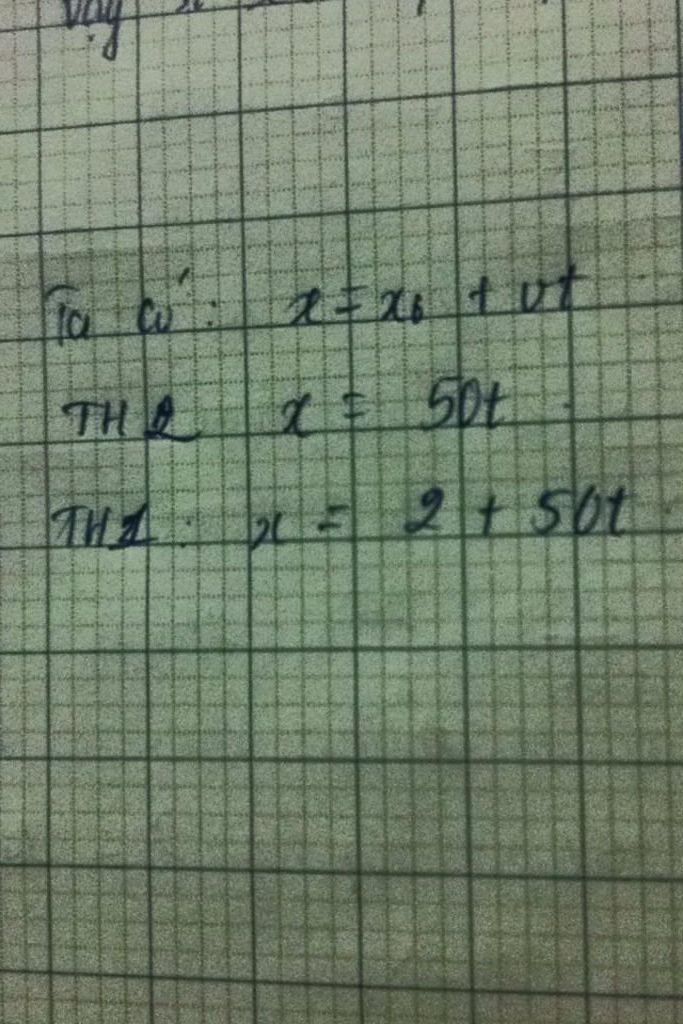 Vậy
Ta có: x = x₀ + vt
TH2 x = 50t
TH1: x = 2 + 50t